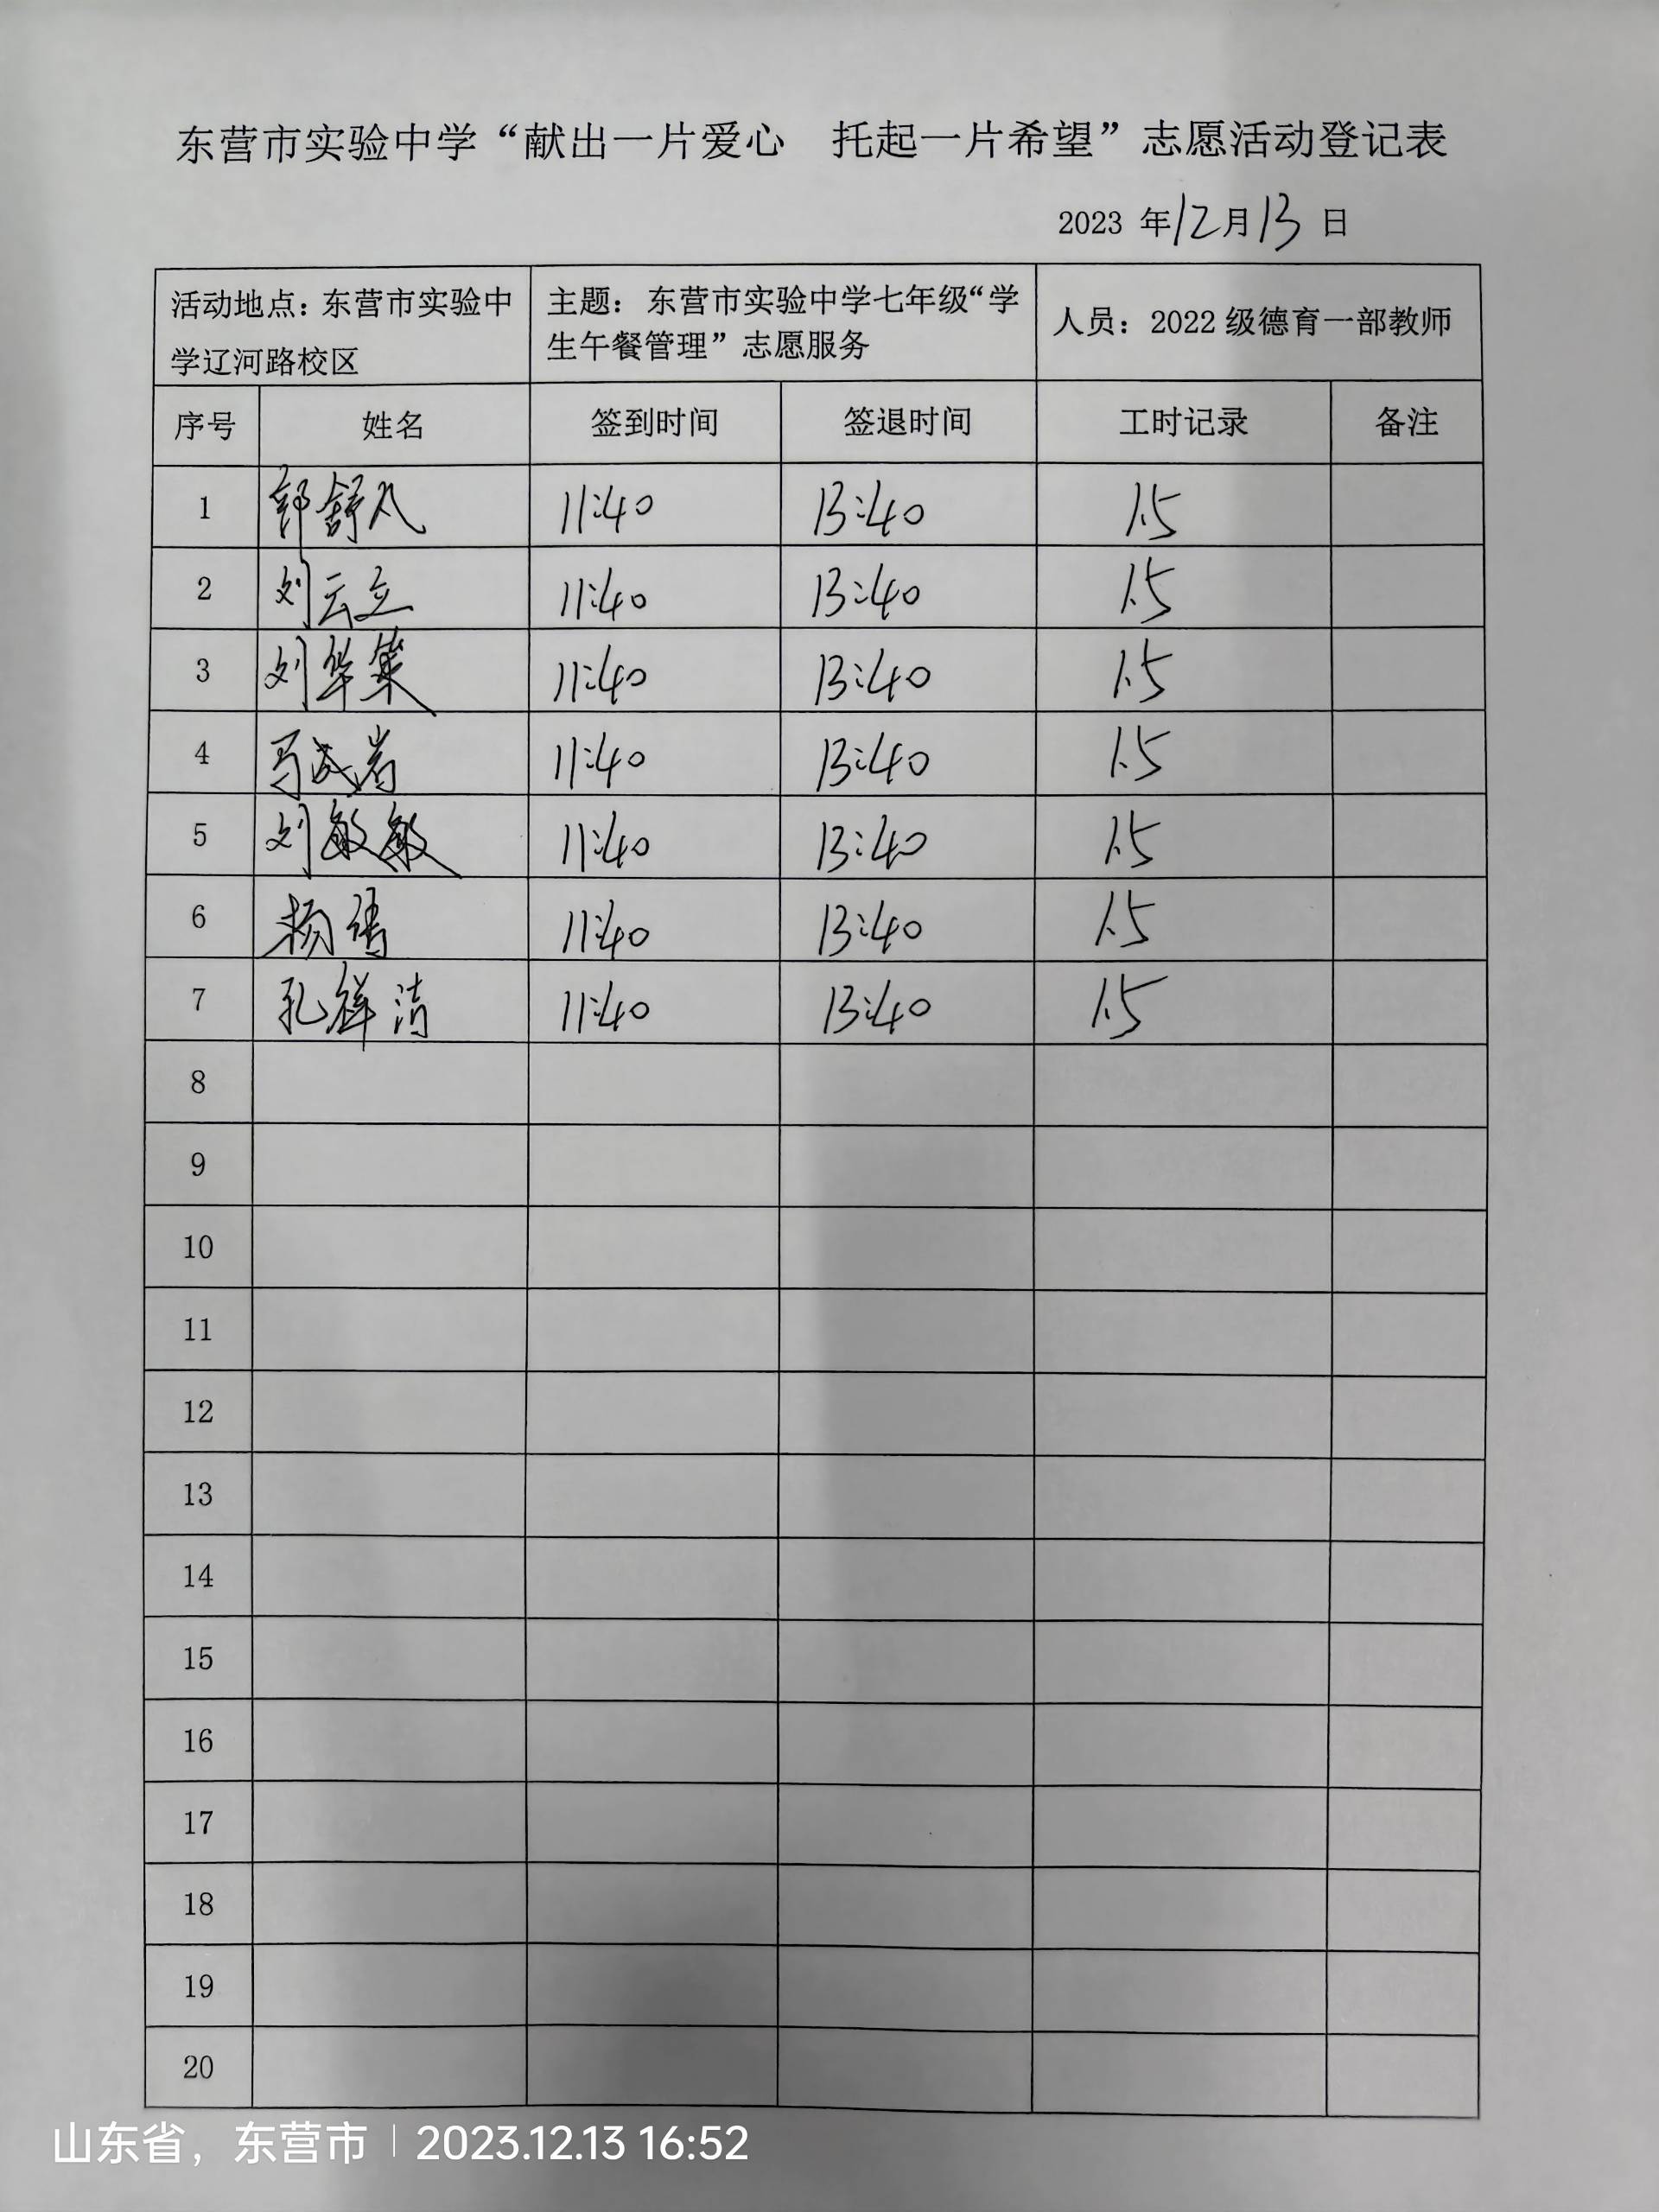 东营市实验中学“献出一片爱心　托起一片希望”志愿活动登记表
2023 年12月13日
活动地点：东营市实验中
学辽河路校区
主题：东营市实验中学七年级“学
生午餐管理”志愿服务
人员：2022 级德育一部教师
序号 姓名 签到时间 签退时间 工时记录 备注
1 郭舒 11:40 13:40 1.5
2 刘云立 11:40 13:40 1.5
3 刘华 11:40 13:40 1.5
4 马 岩 11:40 13:40 1.5
5 刘敏敏 11:40 13:40 1.5
6 杨 11:40 13:40 1.5
7 孔祥清 11:40 13:40 1.5
8
9
10
11
12
13
14
15
16
17
18
19
20
山东省，东营市 | 2023.12.13 16:52